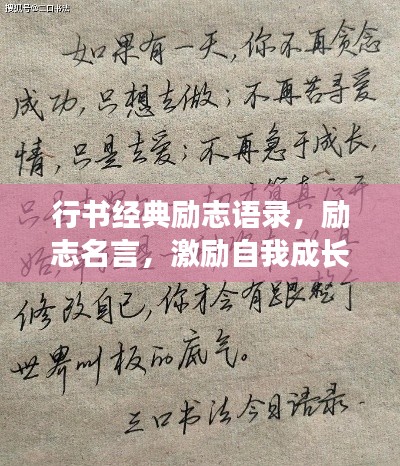 搜狐号@二口书法
如果有一天,你不再贪念
成功,只想去做;不再苦寻爱
情,只是去爱;不再急于成长,
才算真正开
行书经典励志语录，励
志名言，激励自我成长
修改自己,你才会有跟整个
世界叫板的底气。
二口书法今日语录.